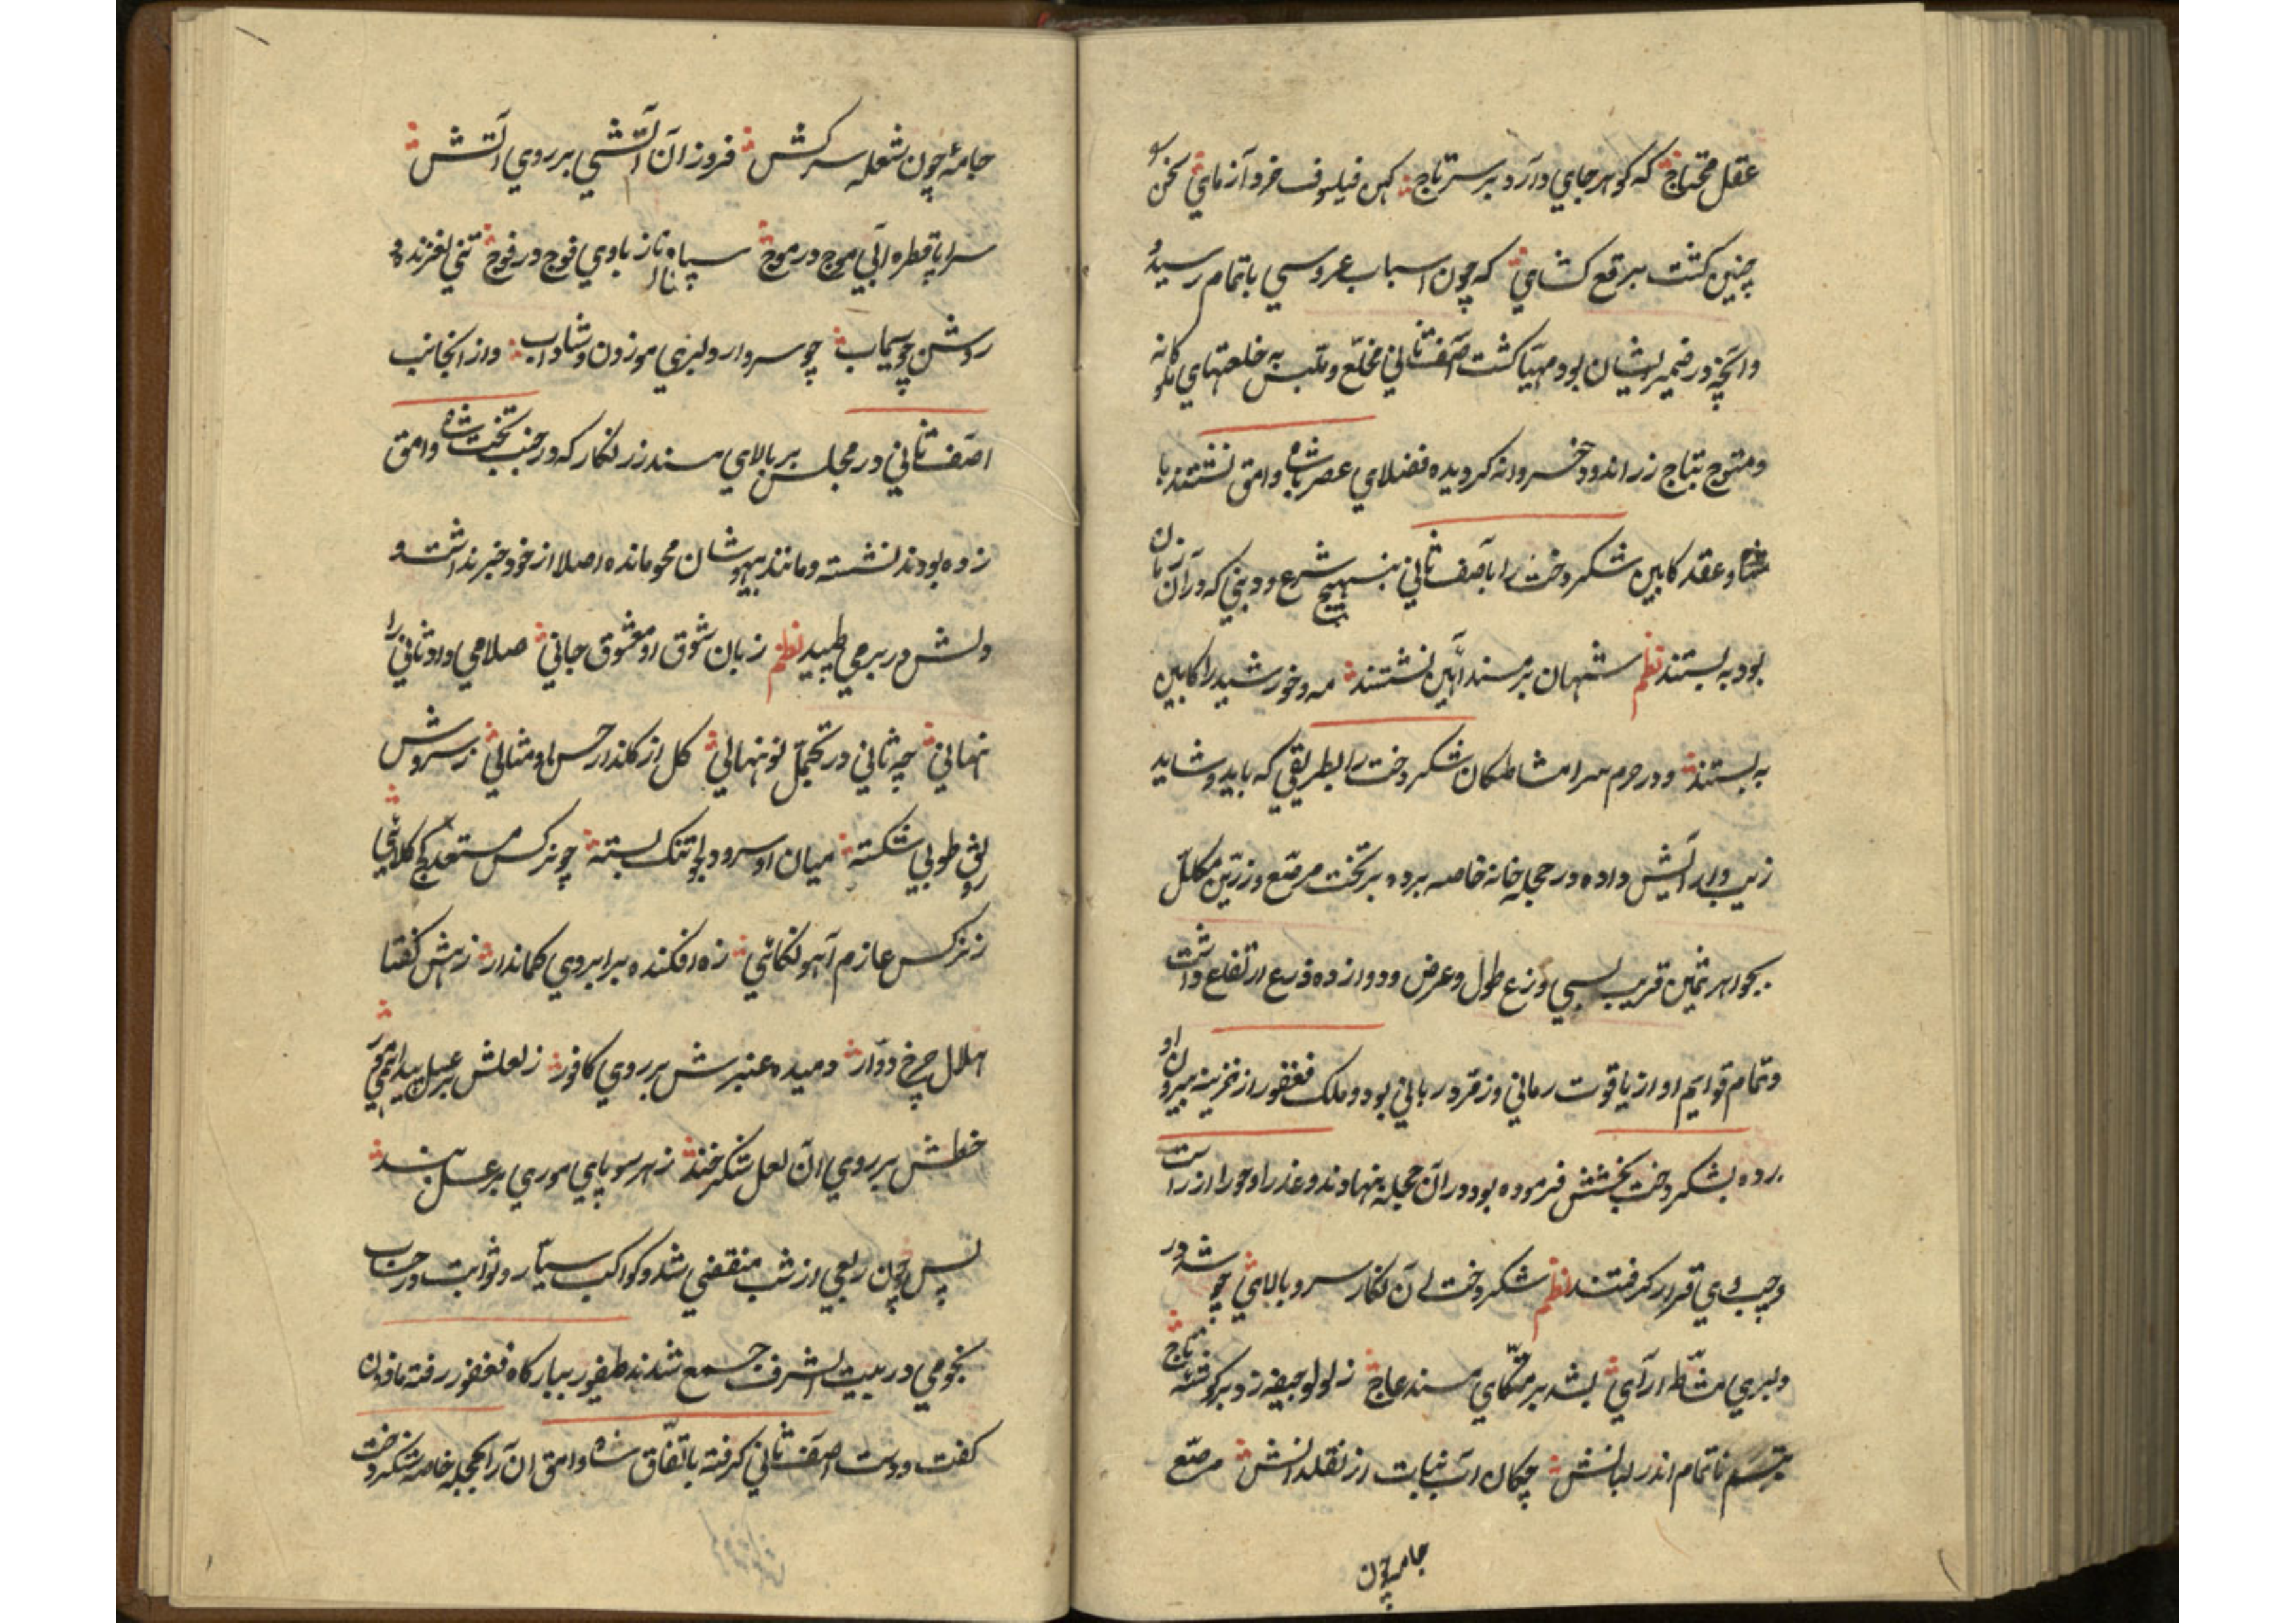 عقل محتاج که گوهر جای دارد بر سر تاج کهن فیلسوف خرد آزمای سخن
چنین گشت برقع کشای که چون اسباب عروسی باتمام رسید و
وانچه در ضمیر ایشان بود مهیّا گشت آصف ثانی مخلّع و ملبس به خلعتهای ملوکانه
و متوج بتاج زر اندود خسروانه گردیده فضلای عصر باشاه وامق نشستند با
و عقد کابین شکردخت را بآصف ثانی بنهیج شرع و دینی که در آن زمان
بود به بستند نظم شهان بر مسند آئین نشستند مه و خورشید را کابین
به بستند و در حرم سرا مشاطکان شکردخت را بطریقی که باید و شاید
زیب و آرایش داده در حجله خانه خاصه برده بر تخت مرصّع و زرّین مکلل
بجواهر ثمین قریب بسی درع طول و عرض و دوازده ذرع ارتفاع داشت
و تمام قوایم او از یاقوت رمانی و زمرد ربانی بود و ملک فغفور از خزینه بیرون او
رده بشکردخت بخشش فرموده بود در آن حجله نهادند و عذرا و حورا از راست
و چپ وی قرار گرفتند نظم شکردخت آن نگار سرو بالای چو شد در
دلبری مشّاطه آرای بشد بر متکای مسند عاج ز لولو جیغه زد بر گوشهٔ تاج
تبسم ناتمام اندر لبانش چکان آب نبات از نقلدانش مرصّع
جامه چون
جامهٔ چون شعله سرکش فروزان آتشی بر روی آتش
سراپا قطره آبی موج در موج سپاه ناز با وی فوج در فوج تنی لغزنده و
روشن چو سیماب چو سرو از دلبری موزون و شاداب و از انجانب
اصف ثانی در مجلس بر بالای مسند زر نگار که در جنب تخت شاه وامق
زده بودند نشسته و مانند بیهوشان محو مانده اصلا از خود خبر نداشت و
دلش در بر می طپید نظم زبان شوق او معشوق جانی صلا می داد ثانی را
نهانی چه ثانی در تجمّل نو نهالی گل از گلذار حسن او مثالی ز سروش
رونق طوبی شکسته میان او سرو دلجو تنک بسته چو نرکس مستعد کج کلاهی
ز نرکس عازم آهو نکاهی زه افکنده بر ابروی کماندار زهش گفتا
هلال چرخ دوّار دمیده عنبرش بر روی کافور ز لعلش
خطش بر روی آن لعل شکرخند ز هر سو پای موری بر عسل بند
پس چون ربعی از شب منقضی شد و کواکب سیّار و ثوابت در جناب
نجومی در بیت الشرف جمع شدند طیفور ببارگاه فغفور رفته مافون
گفت و دست اصف ثانی گرفته باتفّاق شاه وامق آن را بحجله خاصه شکردخت